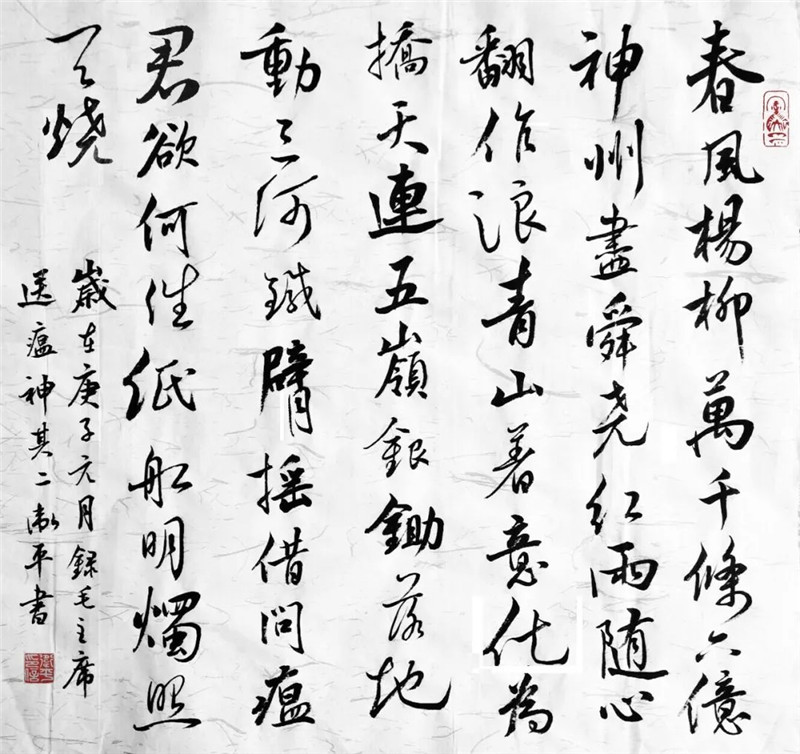 春風楊柳萬千條六億
神州盡舜尧红雨随心
翻作浪青山着意化為
橋天連五嶺銀鋤落地
動三河鐵臂摇借問瘟
君欲何往纸船明燭照
天烧
歲在庚子元月録毛主席
送瘟神其二衛平書